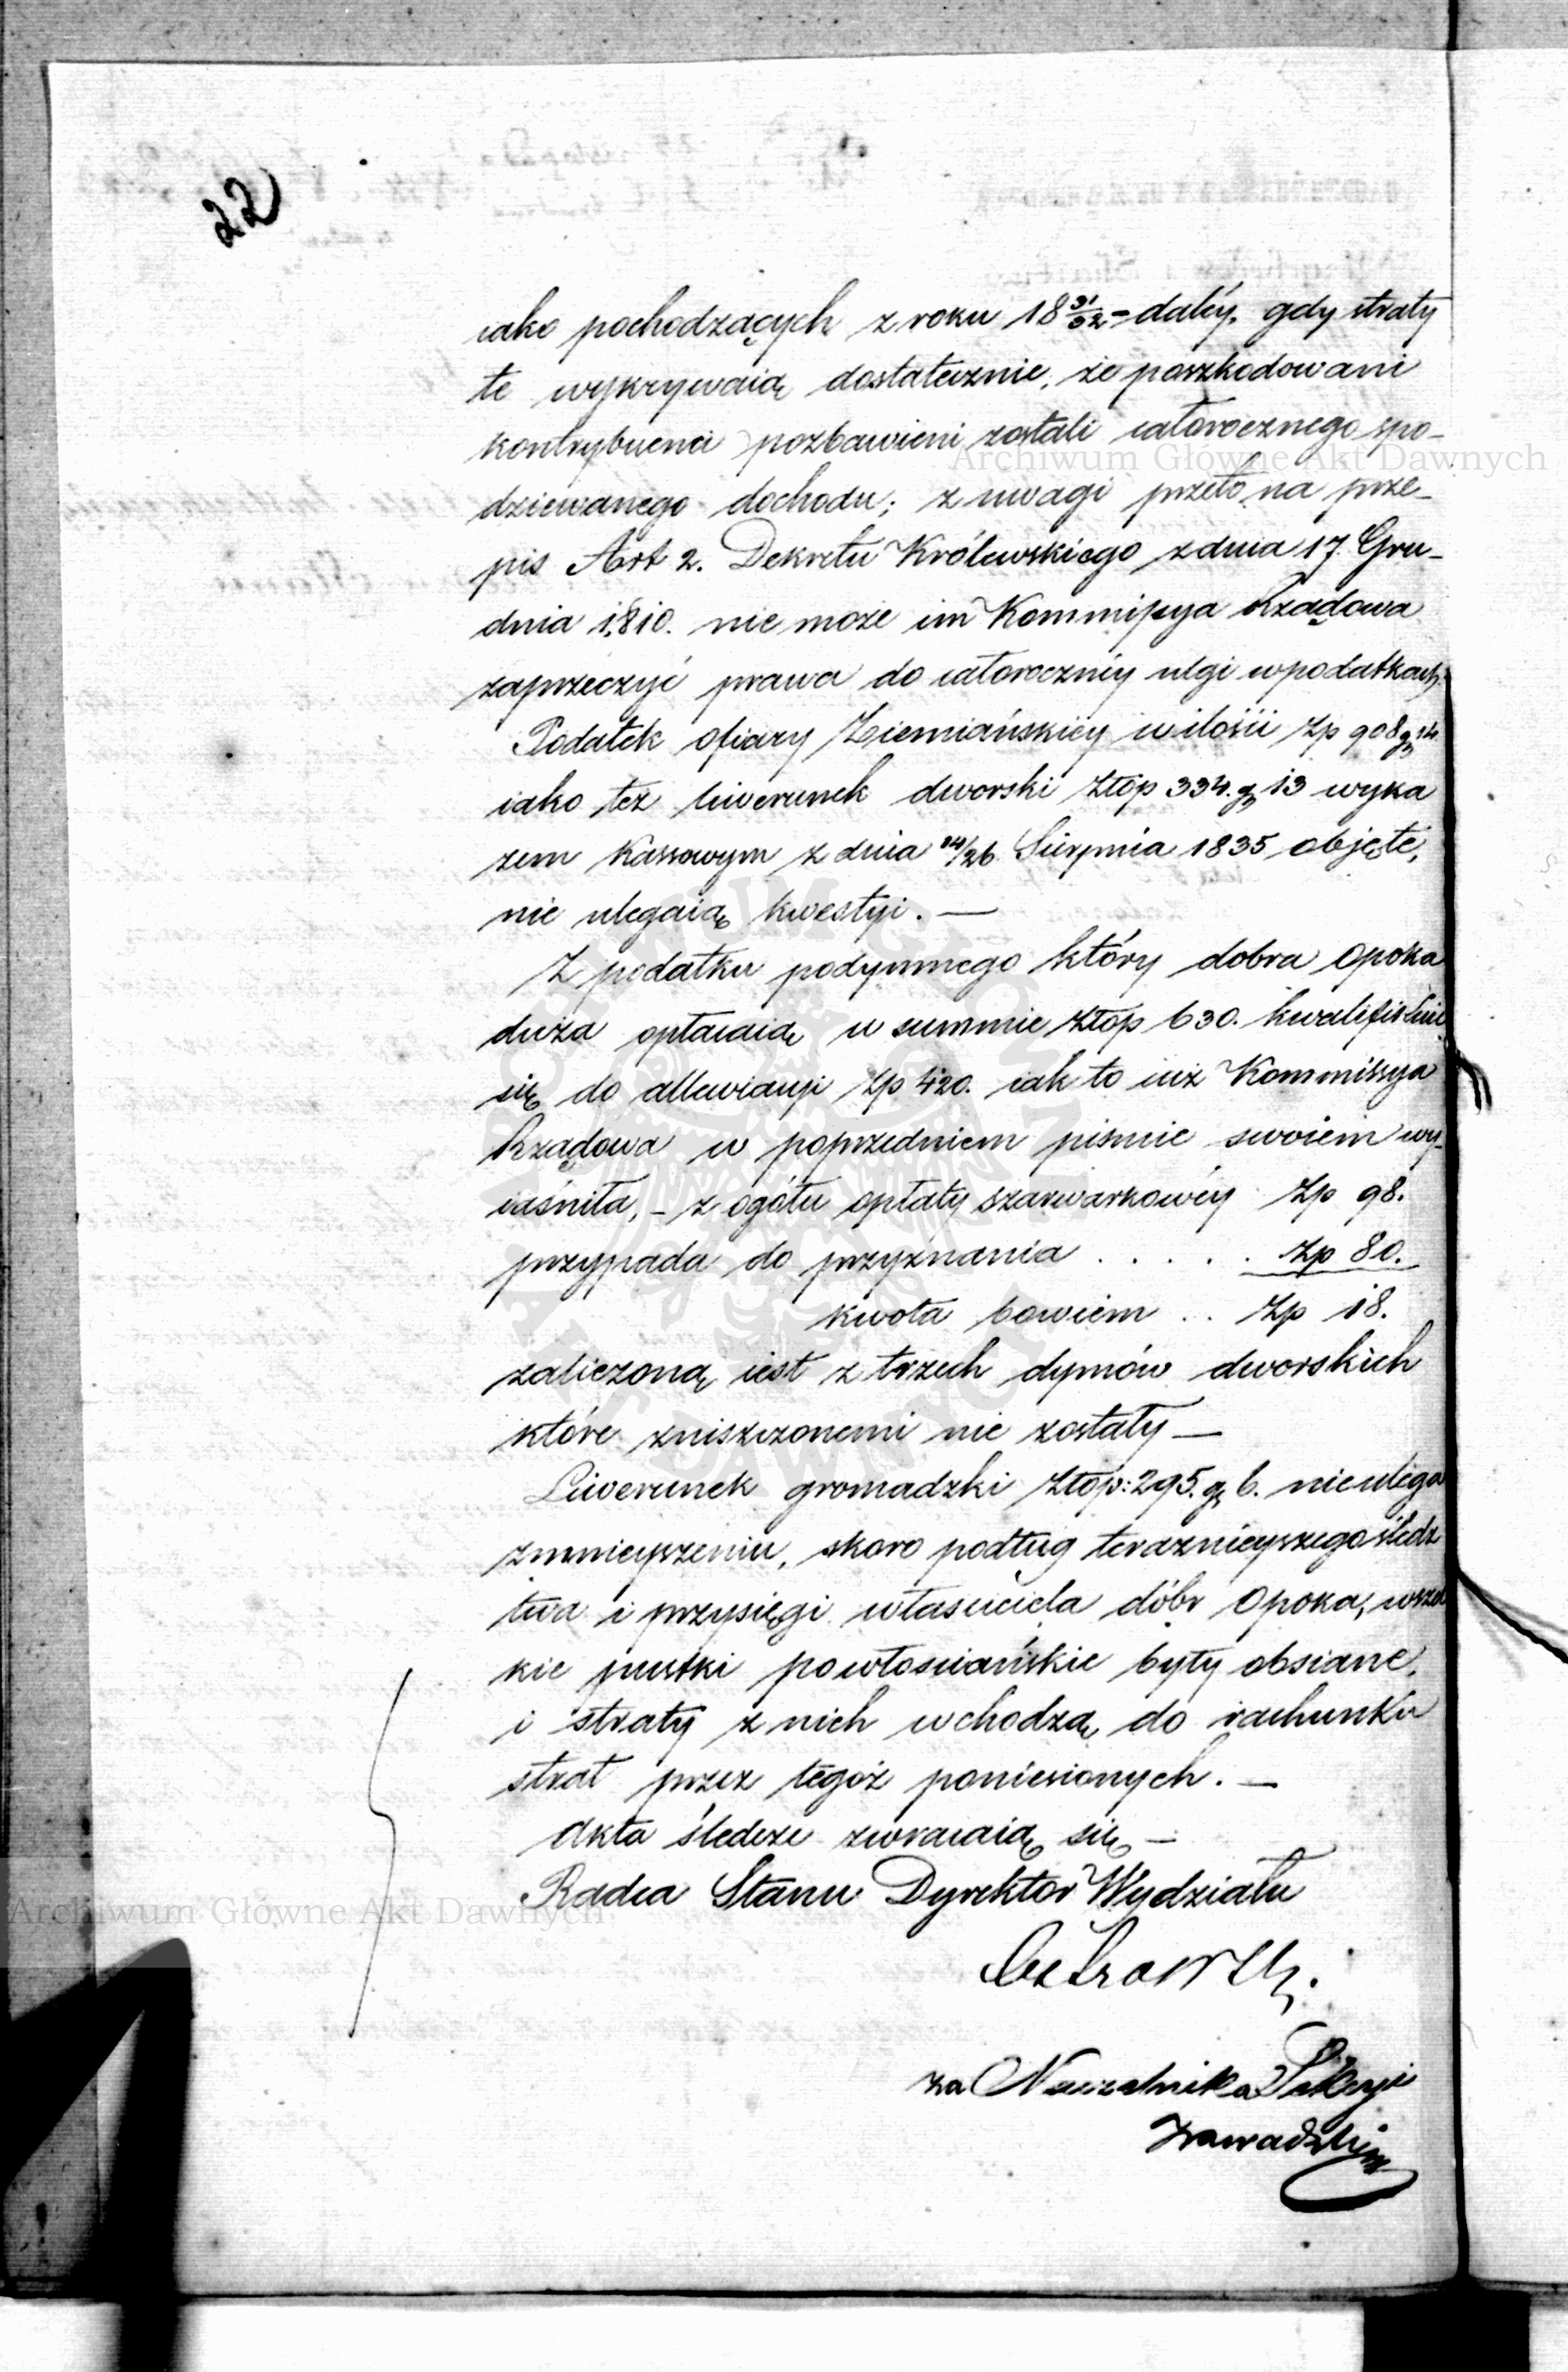 22
iako pochodzących z roku 18 31/32 = daléy, gdy straty
te wykrywaią dostatecznie, że poszkodowani
kontrybuenci pozbawieni zostali całorocznego spo-
dziewanego dochodu; z uwagi przeto na prze-
pis Art 2. Dekretu Królewskiego z dnia 17. Gru-
dnia 1810. nie może im Kommissya Rządowa
zaprzeczyć prawa do całorocznéy ulgi w podatkach.
Podatek ofiary Ziemiańskiey w ilości Zp 908 gr 14.
iako też liwerunek dworski Złop 334. gr 13 wyka
zem Kassowym z dnia 14/26 Sierpnia 1835 objęte,
nie ulegaią kwestyi. —
Z podatku podymnego który dobra Opoka
duża opłacaią w summie Złop 630. kwalifikuie
się do allewiacyi Zp 420. iak to iuż Kommissya
Rządowa w poprzedniem piśmie swoiem wy-
iaśniła, – z ogółu opłaty szarwarkowéy Zp 98.
przypada do przyznania . . . . . Zp 80.
kwota bowiem . . Zp 18.
zaliczoną iest z trzech dymów dworskich
które zniszczonemi nie zostały —
Liwerunek gromadzki Złop: 295. gr 6. nieulega
zmnieyszeniu, skoro podług teraznieyszego śledz
twa i przysięgi właściciela dóbr Opoka, wszel
kie pustki powłościańskie były obsiane,
i straty z nich wchodzą do rachunku
strat przez tegoż poniesionych. —
Akta śledcze zwracaią się —
Radca Stanu Dyrektor Wydziału
za Naczelnika Sekcyi
Zawadzki
Archiwum Główne Akt Dawnych
Archiwum Główne Akt Dawnych
ARCHIWUM GŁÓWNE AKT DAWNYCH